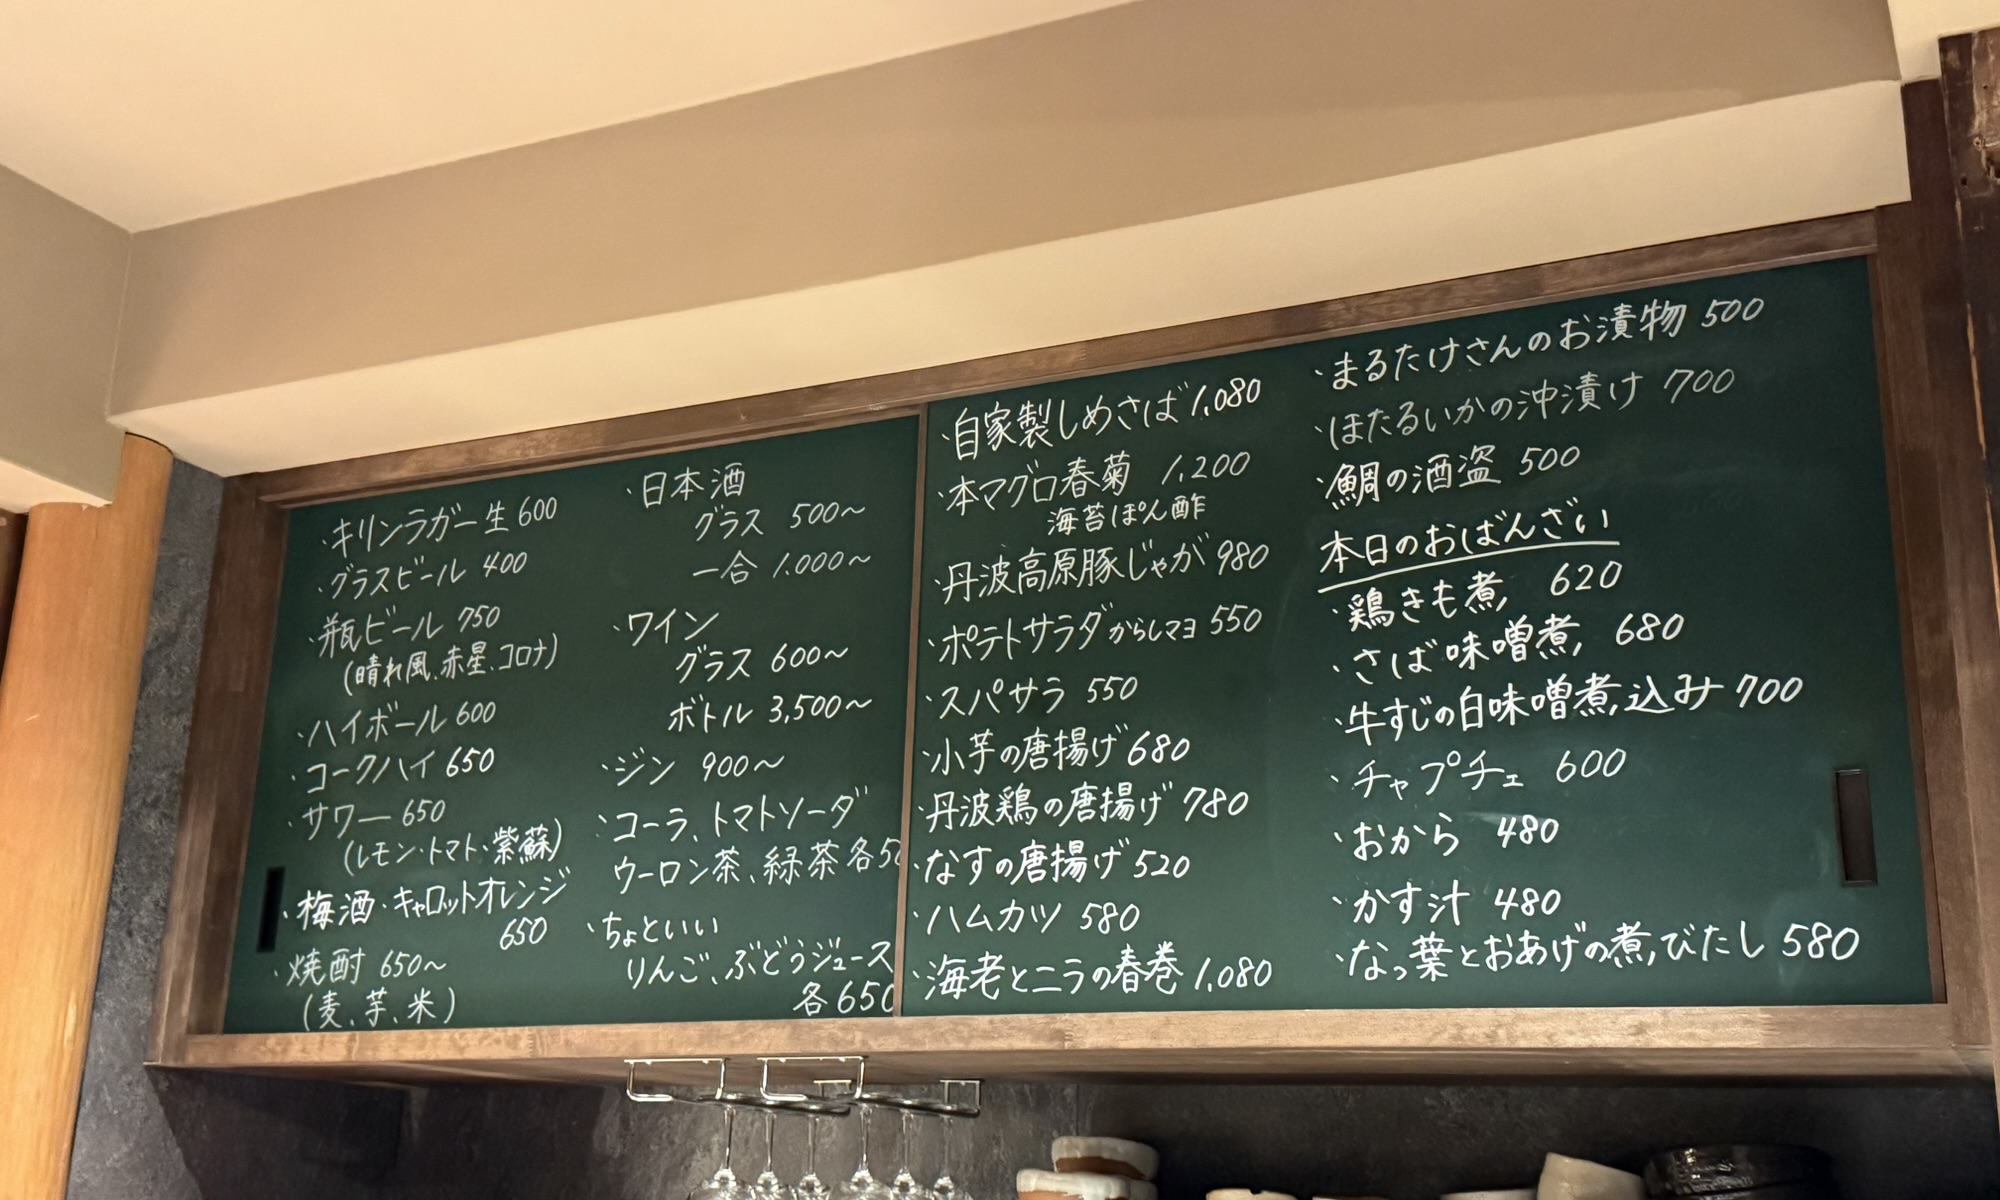 ・キリンラガー生 600
・グラスビール 400
・瓶ビール 750
(晴れ風、赤星、コロナ)
・ハイボール 600
・コークハイ 650
・サワー 650
(レモン・トマト・紫蘇)
・梅酒・キャロットオレンジ
650
・焼酎 650〜
(麦、芋、米)
・日本酒
グラス 500〜
一合 1,000〜
・ワイン
グラス 600〜
ボトル 3,500〜
・ジン 900〜
・コーラ、トマトソーダ
ウーロン茶、緑茶各50
・ちょといい
りんご、ぶどうジュース
各650
・自家製しめさば 1,080
・本マグロ春菊 1,200
海苔ぽん酢
・丹波高原豚じゃが 980
・ポテトサラダからしマヨ 550
・スパサラ 550
・小芋の唐揚げ 680
・丹波鶏の唐揚げ 780
・なすの唐揚げ 520
・ハムカツ 580
・海老とニラの春巻 1,080
・まるたけさんのお漬物 500
・ほたるいかの沖漬け 700
・鯛の酒盗 500
本日のおばんざい
・鶏きも煮 620
・さば味噌煮 680
・牛すじの白味噌煮込み 700
・チャプチェ 600
・おから 480
・かす汁 480
・なっ葉とおあげの煮びたし 580